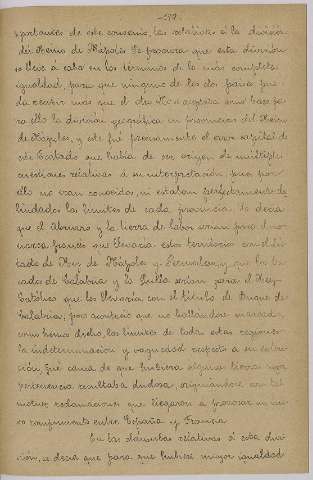 -279-
portantes de este convenio, las relativas a la división
del Reino de Nápoles. Se procura que esta división
se lleve á cabo en los términos de la más completa
igualdad, para que ninguno de los dos países pue-
da recibir más que el otro. Se acepta como base pa-
ra ello la división geográfica en provincias del Reino
de Nápoles, y este fué precisamente el error capital de
este Tratado que había de ser origen de múltiples
cuestiones relativas á su interpretación, pues por
ello no eran conocidos, ni estaban perfectamente des-
lindados los límites de cada provincia. Se decía
que el Abruzo y la tierra de Labor serían para el mo-
narca francés que llevaría estos territorios con el dic-
tado de Rey de Nápoles y Jerusalen, y que los du-
cados de Calabria y la Pulla serían para el Rey
Católico que los llevaría con el título de Duque de
Calabria, pero aconteció que no hallándose marcados,
como hemos dicho, los límites de todas estas regiones
la indeterminación y vaguedad respecto á su exten-
sión, fué causa de que hubiera algunas tierras cuya
pertenencia resultaba dudosa, originándose con tal
motivo reclamaciones que llegaron a provocar un nue-
vo rompimiento entre España y Francia.
En las cláusulas relativas á esta divi-
sión, se decía que para que hubiese mayor igualdad